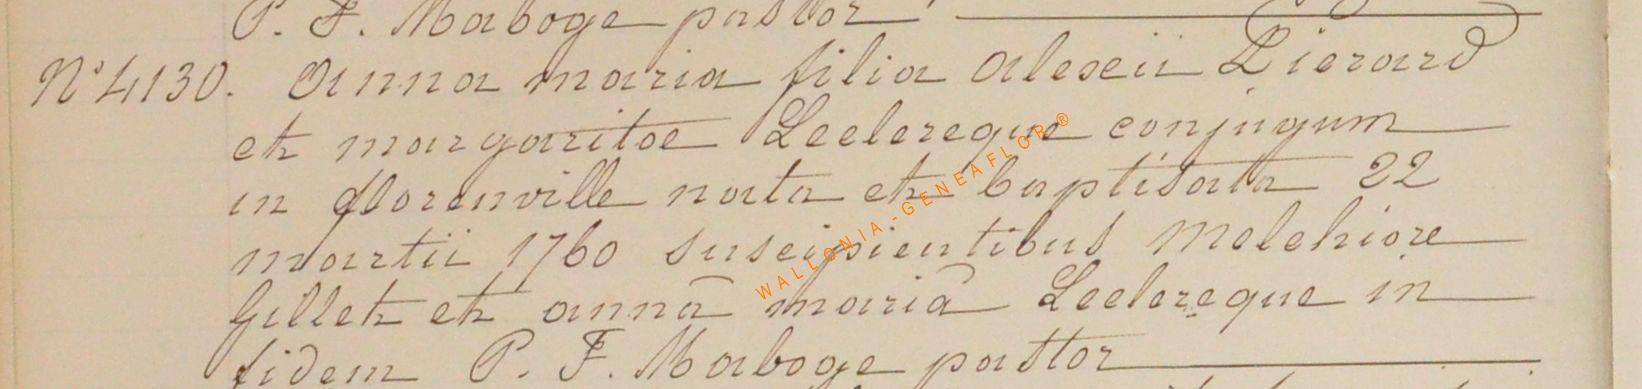 P. F. Maboge pastor
N° 4130. Anna maria filia Alexii Pierard
et margaritae Leclercque conjugum
in florenville nata et baptisata 22
martii 1760 suscipientibus Melchiore
Gillet et annâ mariâ Leclercque in
fidem P. F. Maboge pastor
WALLONIA-GENEAFLOR®